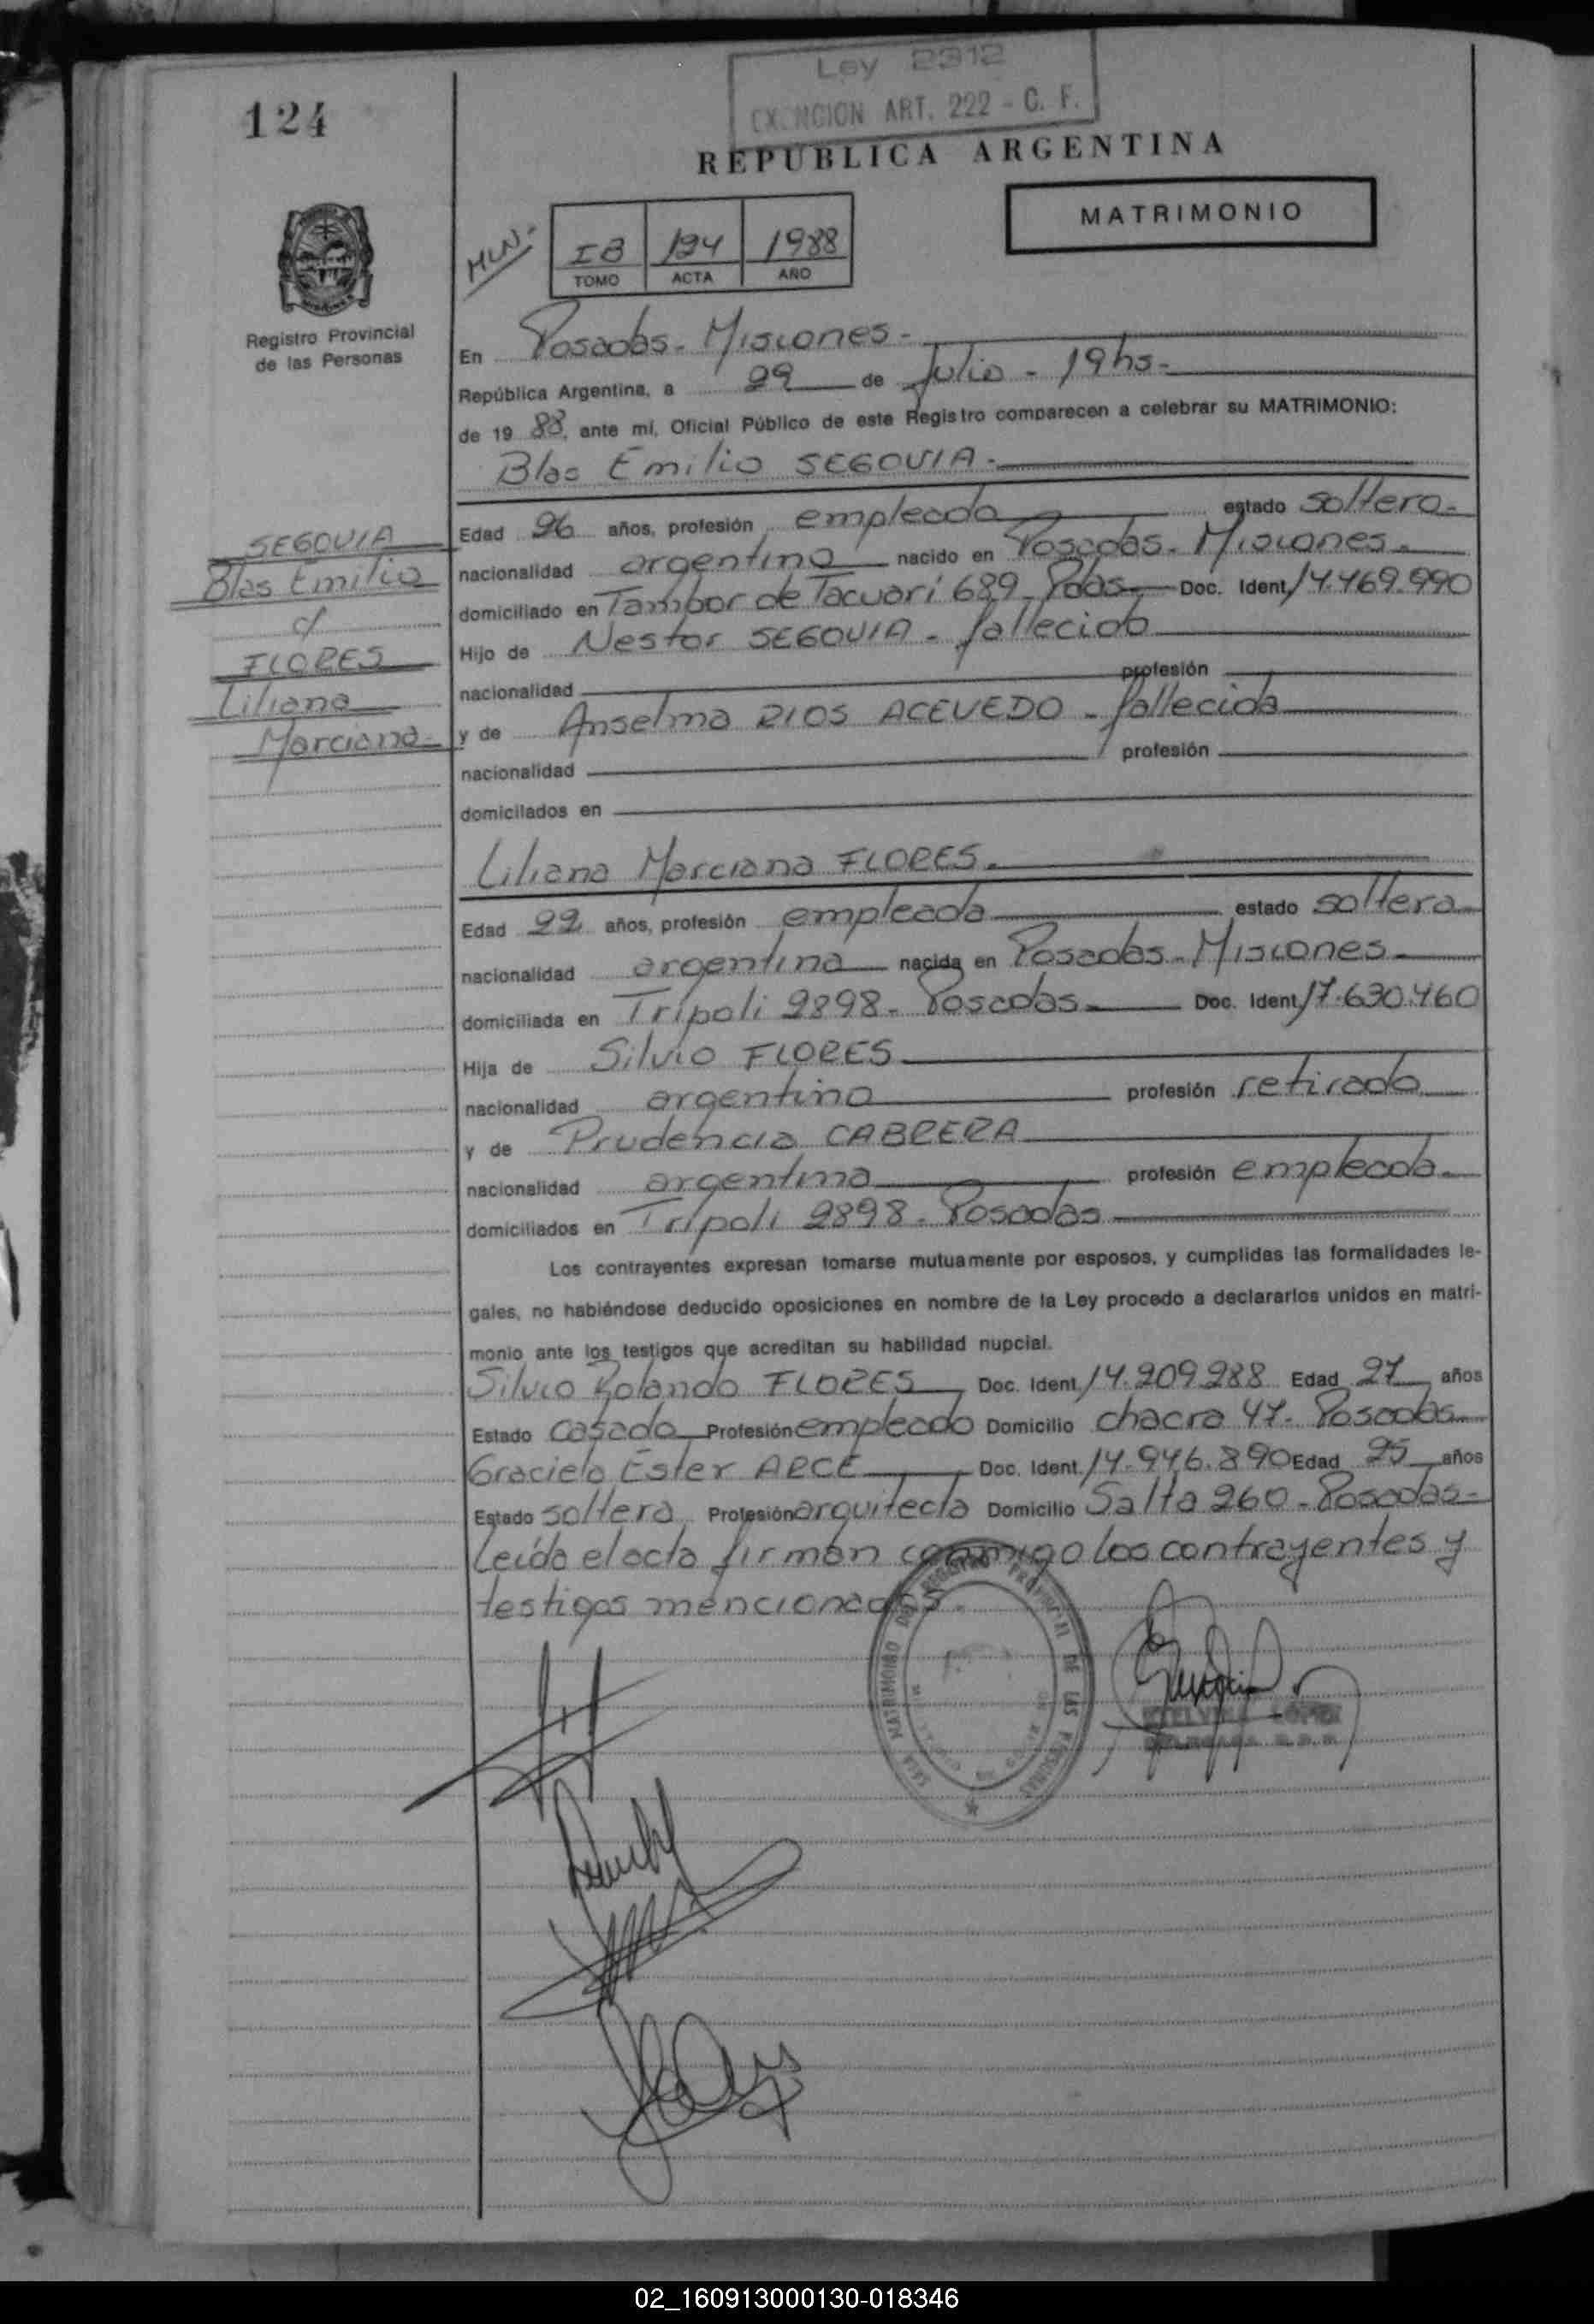 Ley 2312
EXENCION ART. 222 - C. F.
124
REPUBLICA ARGENTINA
MATRIMONIO
MLN.-
IB 124 1988
TOMO ACTA AÑO
Registro Provincial
de las Personas
En Posadas - Misiones -
República Argentina, a 29 de Julio - 19hs -
de 19 88, ante mí, Oficial Público de este Registro comparecen a celebrar su MATRIMONIO:
Blas Emilio SEGOVIA.-
SEGOVIA
Blas Emilio
c/
FLORES
Liliana
Marciana -
Edad 26 años, profesión empleado estado soltero -
nacionalidad argentino nacido en Posadas - Misiones -
domiciliado en Tambor de Tacuarí 689 - Pdas - Doc. Ident. 14.469.990
Hijo de Nestor SEGOVIA - fallecido
nacionalidad profesión
y de Anselma RIOS ACEVEDO - fallecida
nacionalidad profesión
domicilados en
Liliana Marciana FLORES.-
Edad 22 años, profesión empleada estado soltera -
nacionalidad argentina nacida en Posadas - Misiones -
domiciliada en Trípoli 2898 - Posadas - Doc. Ident. 17.630.460
Hija de Silvio FLORES
nacionalidad argentino profesión retirado
y de Prudencia CABRERA
nacionalidad argentina profesión empleada -
domiciliados en Trípoli 2898 - Posadas
Los contrayentes expresan tomarse mutuamente por esposos, y cumplidas las formalidades le-
gales, no habiéndose deducido oposiciones en nombre de la Ley procedo a declararlos unidos en matri-
monio ante los testigos que acreditan su habilidad nupcial.
Silvio Rolando FLORES Doc. Ident. 14.209.288 Edad 27 años
Estado casado Profesión empleado Domicilio chacra 47 - Posadas
Graciela Ester ARCE Doc. Ident. 14.946.890 Edad 25 años
Estado soltera Profesión arquitecta Domicilio Salta 260 - Posadas -
Leída el acta firman conmigo los contrayentes y
testigos mencionados.
MATRIMONIO DEL REGISTRO PROVINCIAL DE LAS PERSONAS
LOPEZ
02_160913000130-018346